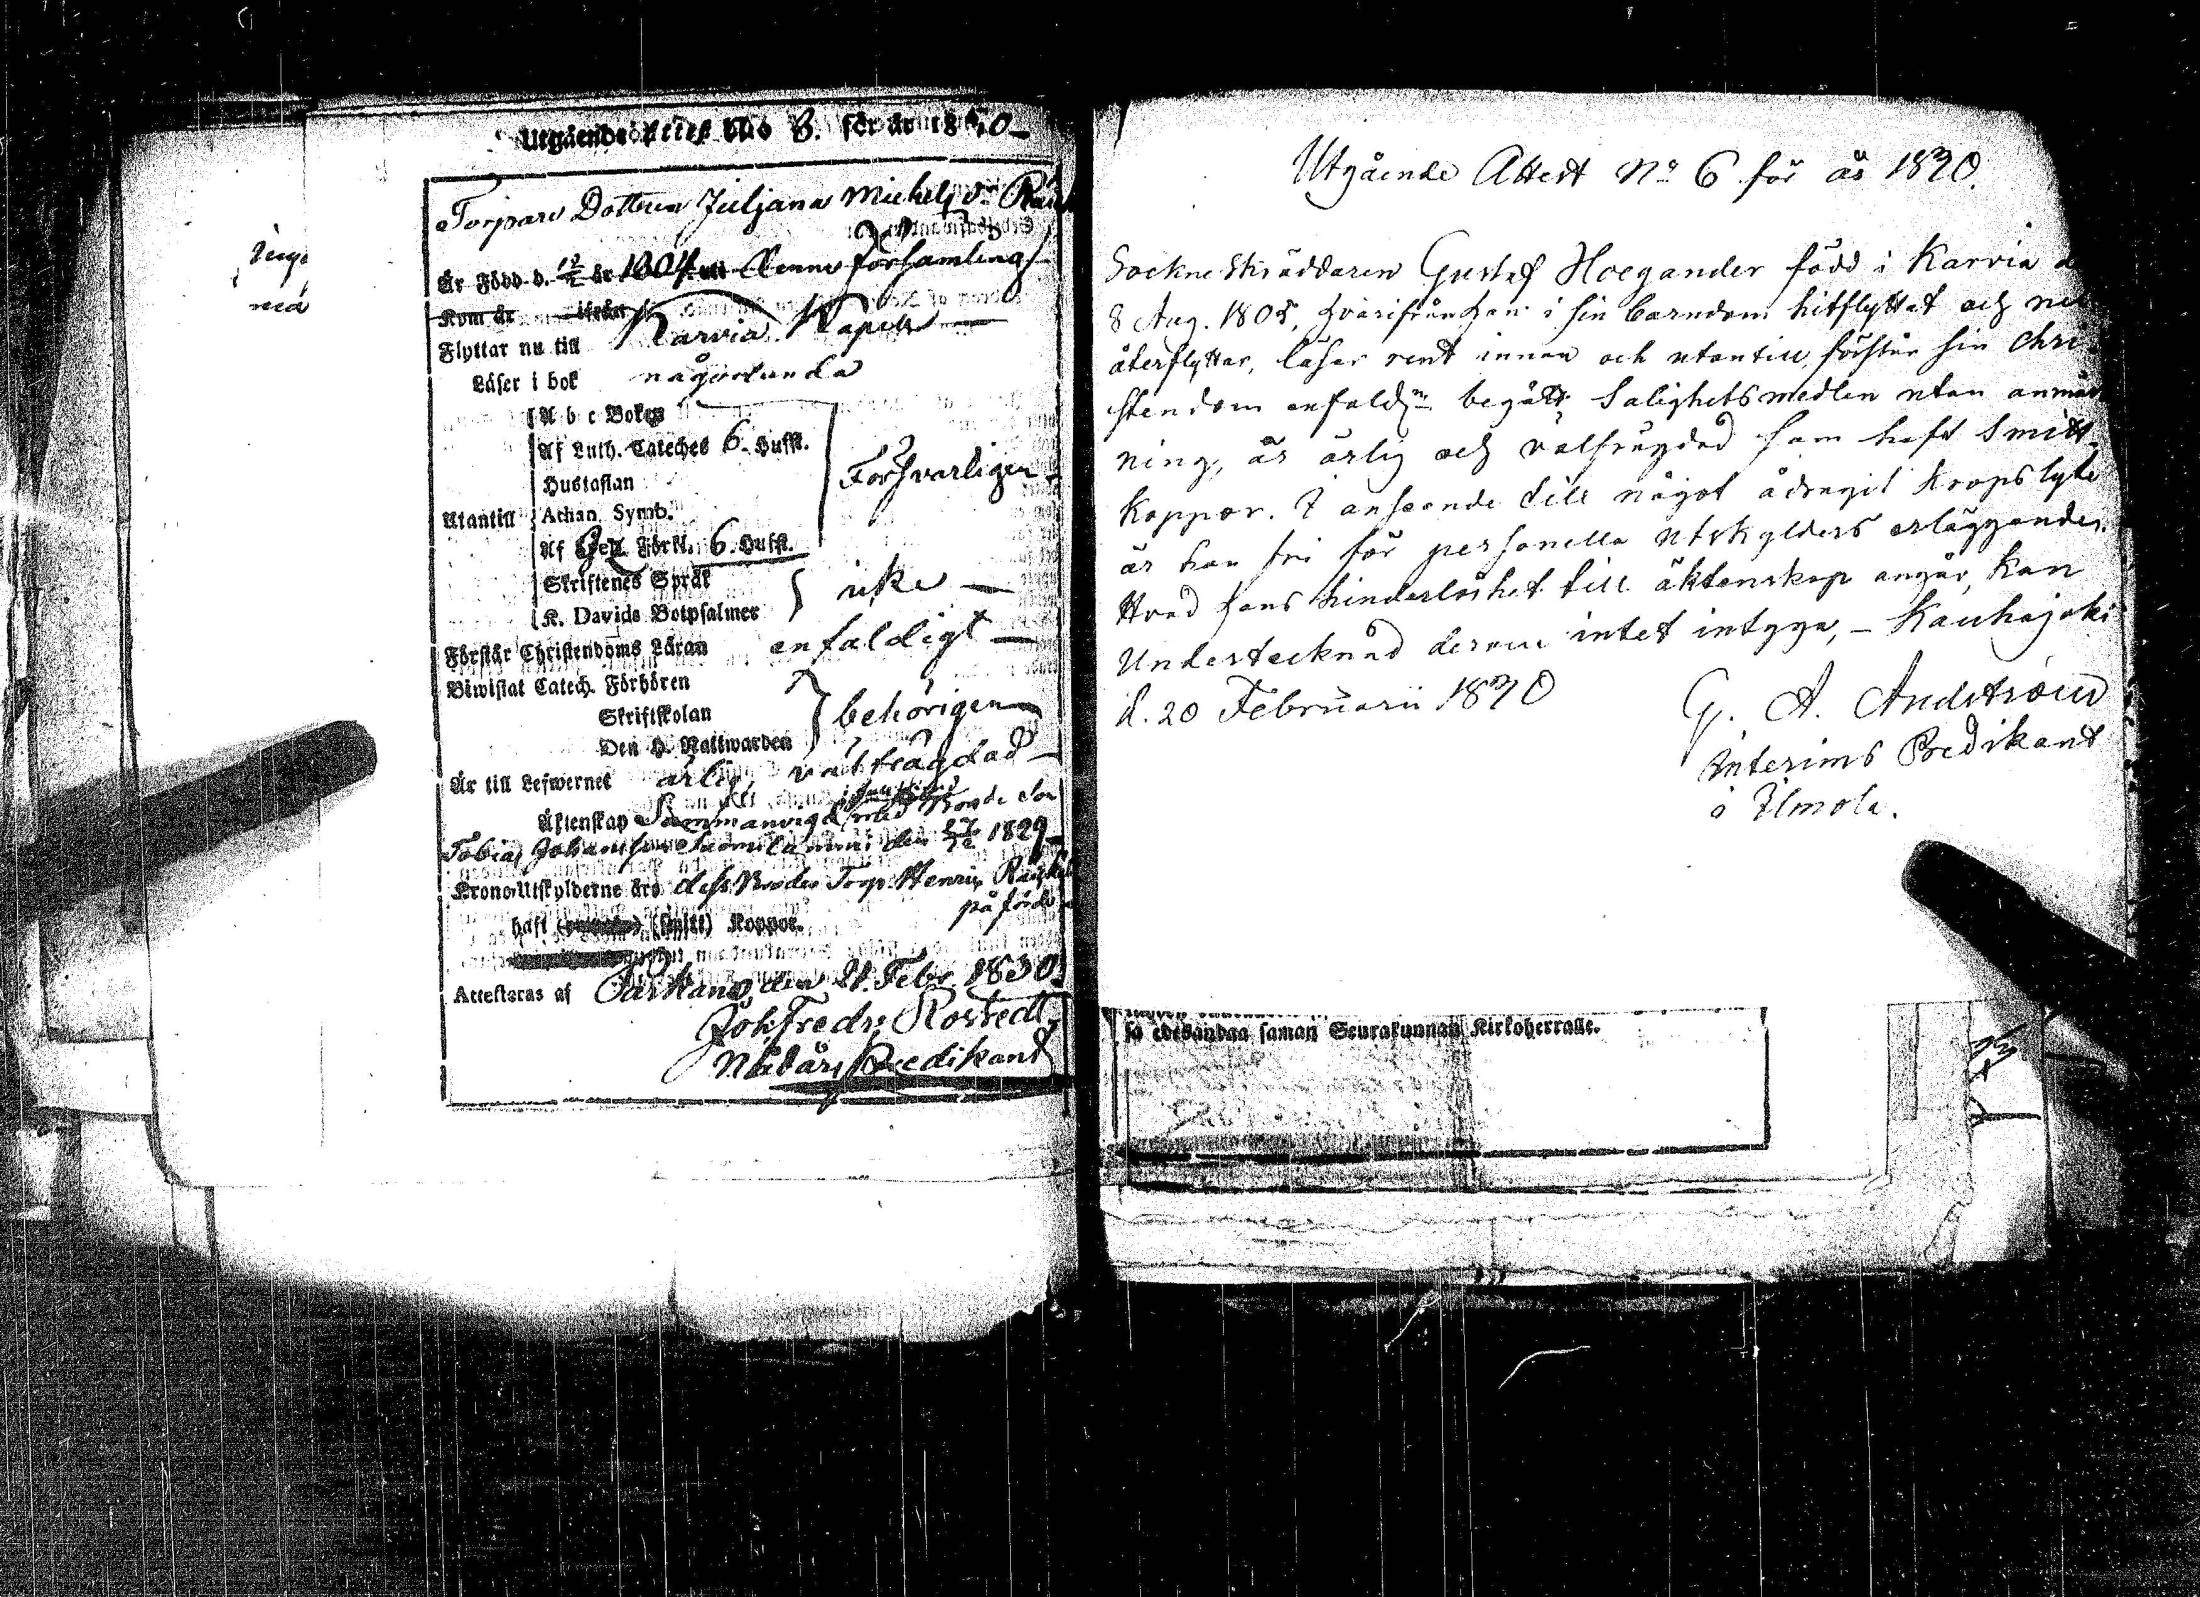 Utgående Attest N:o 8. för år 1830
Torpare Dottren Juljana Michels d:r
Är Född d. 12/2 år 1804 i denna församling
Kom år ifrån
Flyttar nu till Karvia Kapell
Läser i bok någorlunda
A b c Boken
Af Luth. Cateches 6. Huffst.
Hustaflan
Försvarligen
Utantill Athan. Symb.
Af Förkl. 6. Huffst.
Skriftenes Språk
icke
K. Davids Botpsalmer
Förstår Christendoms Läran enfaldigt
Biwistat Catech. Förhören
Skriftskolan
behörigen
Den H. Nattwarden
Är till Lefwernet ärlig, välfrägdad
Äktenskap Sammanvigd med Bonde Son
Tobias Johansson den 27/12 1829
Krono-Utskylderne äro dess Broder Torp. Henric
på förde
haft (smitt) Koppor.
Attesteras af Parkano, den 21. Febr. 1830.
Joh. Fredr. Rostedt
Nådårs Predikant
Utgående Attest N:o 6 för år 1830.
Sockne Skräddaren Gustaf Hoegander född i Karvia
8 Aug. 1805, hvarifrån han i sin barndom hitflyttat och nu
återflyttar, läser rent innan och utantill, förstår sin Chri-
stendom enfald:n begått Salighetsmedlen utan anmärk
ning, är ärlig och välfrägdad samt haft Smitt-
koppor. I anseende till något ådragit kropslyte
är han fri för personella utskylders erläggande.
Hvad hans hinderlöshet till äktenskap angår, kan
Undertecknad derom intet intyga, – Kauhajoki
d. 20 Februarii 1830
G. A. Andström
Interims Predikant
i Ilmola.
ja edeskandaa saman Seurakunnan Kirkoherralle.